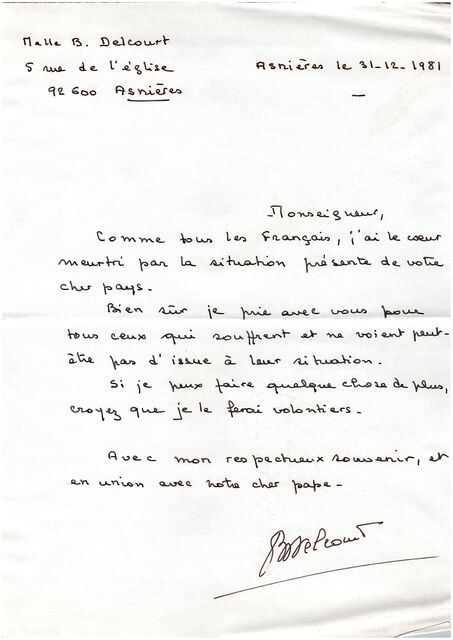 Melle B. Delcourt
5 rue de l'église
92 600 Asnières
Asnières le 31-12-1981
Monseigneur,
Comme tous les Français, j'ai le cœur
meurtri par la situation présente de votre
cher pays.
Bien sûr je prie avec vous pour
tous ceux qui souffrent et ne voient peut-
être pas d'issue à leur situation.
Si je peux faire quelque chose de plus,
croyez que je le ferai volontiers.
Avec mon respectueux souvenir, et
en union avec notre cher pape -
BDelcourt